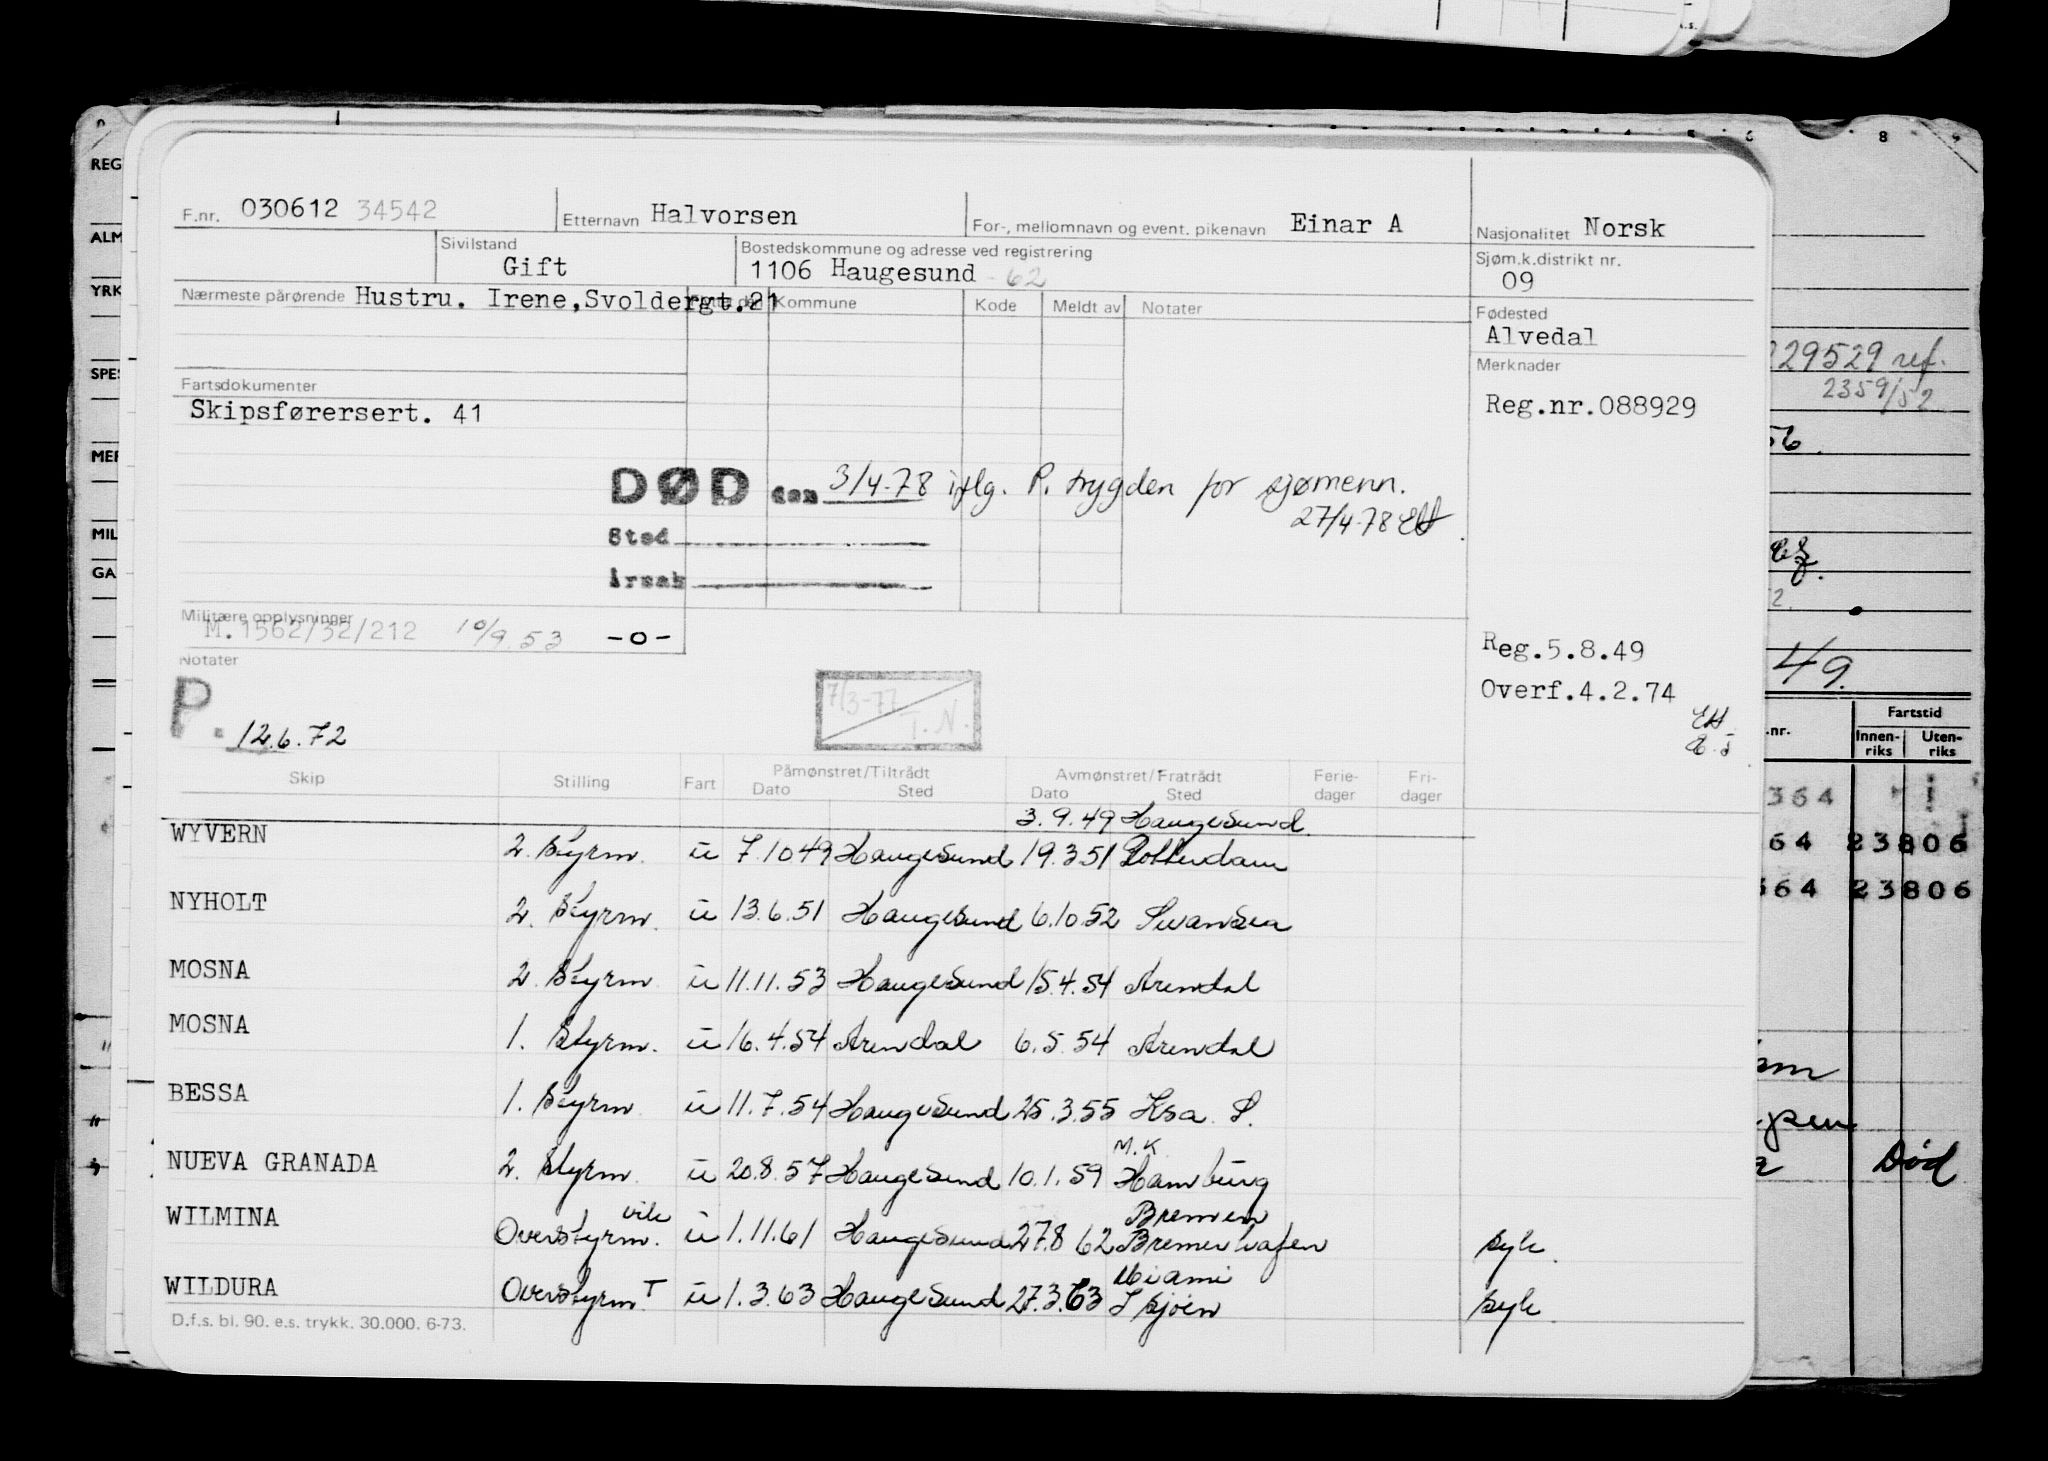 F.nr. 030612 34542 Etternavn Halvorsen For-, mellomnavn og event. pikenavn Einar A Nasjonalitet Norsk
Sivilstand Gift Bostedskommune og adresse ved registrering 1106 Haugesund -62 Sjøm.k.distrikt nr. 09
Nærmeste pårørende Hustru. Irene,Svoldergt.21 Kommune Kode Meldt av Notater
Fødested
Alvedal
Merknader
Fartsdokumenter
Skipsførersert. 41
Reg.nr.088929
DØD den 3/4-78 iflg. P. trygden for sjømenn.
27/4-78 EH
Sted
Årsak
Militære opplysninger
M.1562/32/212 10/9.53 -o-
Reg.5.8.49
Notater
Overf.4.2.74
P. 12.6.72
7/3-77 T.N.
Skip Stilling Fart Påmønstret/Tiltrådt Dato Sted Avmønstret/Fratrådt Dato Sted Ferie-dager Fri-dager
3.9.49 Haugesund
WYVERN 2. Styrm. u 7.10 49 Haugesund 19.3 51 Rotterdam
NYHOLT 2. Styrm. u 13.6.51 Haugesund 6.10.52 Swansea
MOSNA 2. Styrm. u 11.11.53 Haugesund 15.4.54 Arendal
MOSNA 1. Styrm. u 16.4.54 Arendal 6.5.54 Arendal
BESSA 1. Styrm. u 11.7.54 Haugesund 25.3.55 Ksa. S.
M.K.
NUEVA GRANADA 2. Styrm. u 20.8.57 Haugesund 10.1.59 Hamburg
Bremen
WILMINA Overstyrm. vik u 1.11.61 Haugesund 27.8 62 Bremerhafen syk.
Miami
WILDURA Overstyrm. T u 1.3.63 Haugesund 27.3.63 I sjøen syk.
D.f.s. bl. 90. e.s. trykk. 30.000. 6-73.
REG
ALM
YRK
SPES
MER
MIL
GA
8
229529 ref.
2359/52
56.
49.
.nr.
Fartstid
Innen-riks
Uten-riks
364
64 23806
364 23806
Død